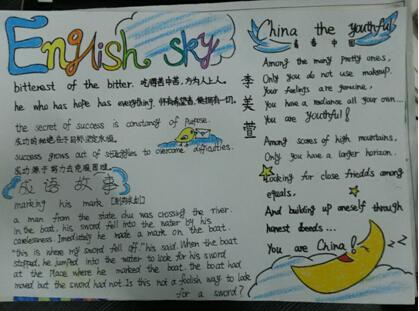 English sky
bitterest of the bitter. 吃得苦中苦,方为人上人。
he who has hope has everything. 怀有希望者,便拥有一切。
the secret of success is constancy of
成功的秘绝在于目标坚定永恒。
success grows out of struggles to overcome difficulties.
成功源于努力去克服困难。
成语故事
marking his mark
a man from the state chu was crossing the river.
In the boat, his sword fell into the water by his
carelessness. Imediately he made a mark on the boat.
"this is where my sword fell off" his said. When the boat
stopped, he jumped into the water to look for his sword
at the Place where he marked the boat. the boat had
moved but the sword had not. Is this not a foolish way to look
for a sword?
China the youthful
青春中国
李美萱
Among the many pretty ones,
Only you do not use makeup.
Your feelings are genuine,
You have a radiance all your own...
You are youthful!
Among scores of high mountains,
Only you have a larger horizon.
Looking for close friedds among
equals.
And building up oneself through
honest deends...
You are China!
z z z